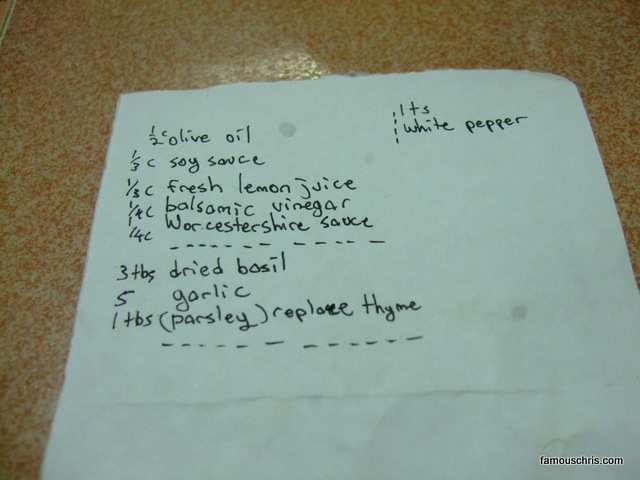 1/2 c olive oil
1/3 c soy sauce
1/3 c fresh lemon juice
1/4 c balsamic vinegar
1/4 c Worcestershire sauce
3 tbs dried basil
5 garlic
1 tbs (parsley) replace thyme
1 ts
white pepper
famouschris.com